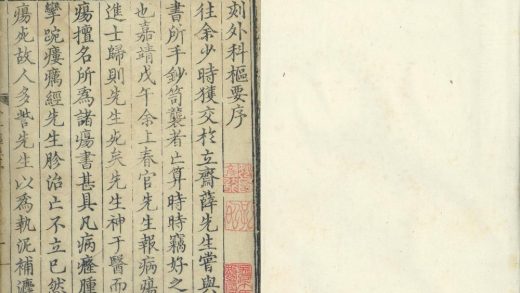 刻外科樞要序
往余少時獲交於立齋薛先生嘗與
書所手鈔笥襲者亡算時時竊好之
也嘉靖戊午余上春官先生報病瘍
進士歸則先生死矣先生神于醫而
瘍擅名所為諸瘍書甚具凡病癰腫
攣踠瘻癘經先生胗治亡不立已然
瘍死故人多訾先生以為執泥補